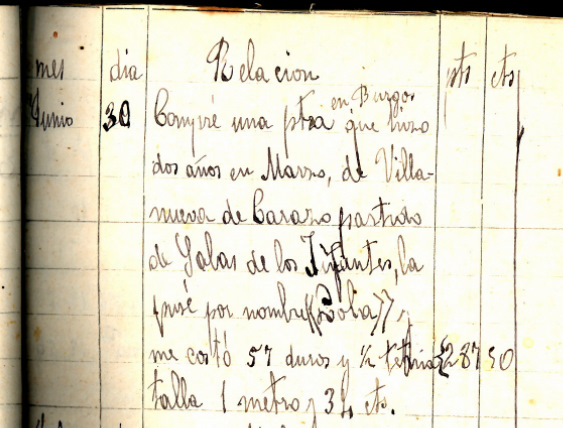 mes dia Relacion pts cts
Junio 30 Compré una ptra en Burgos que hizo
dos años en Marzo, de Villa-
nueva de Carazo partido
de Salas de los Infantes, la
puse por nombre «Lola»,
me costó 57 duros y ½ tenia 287 50
talla 1 metro y 34 cts.